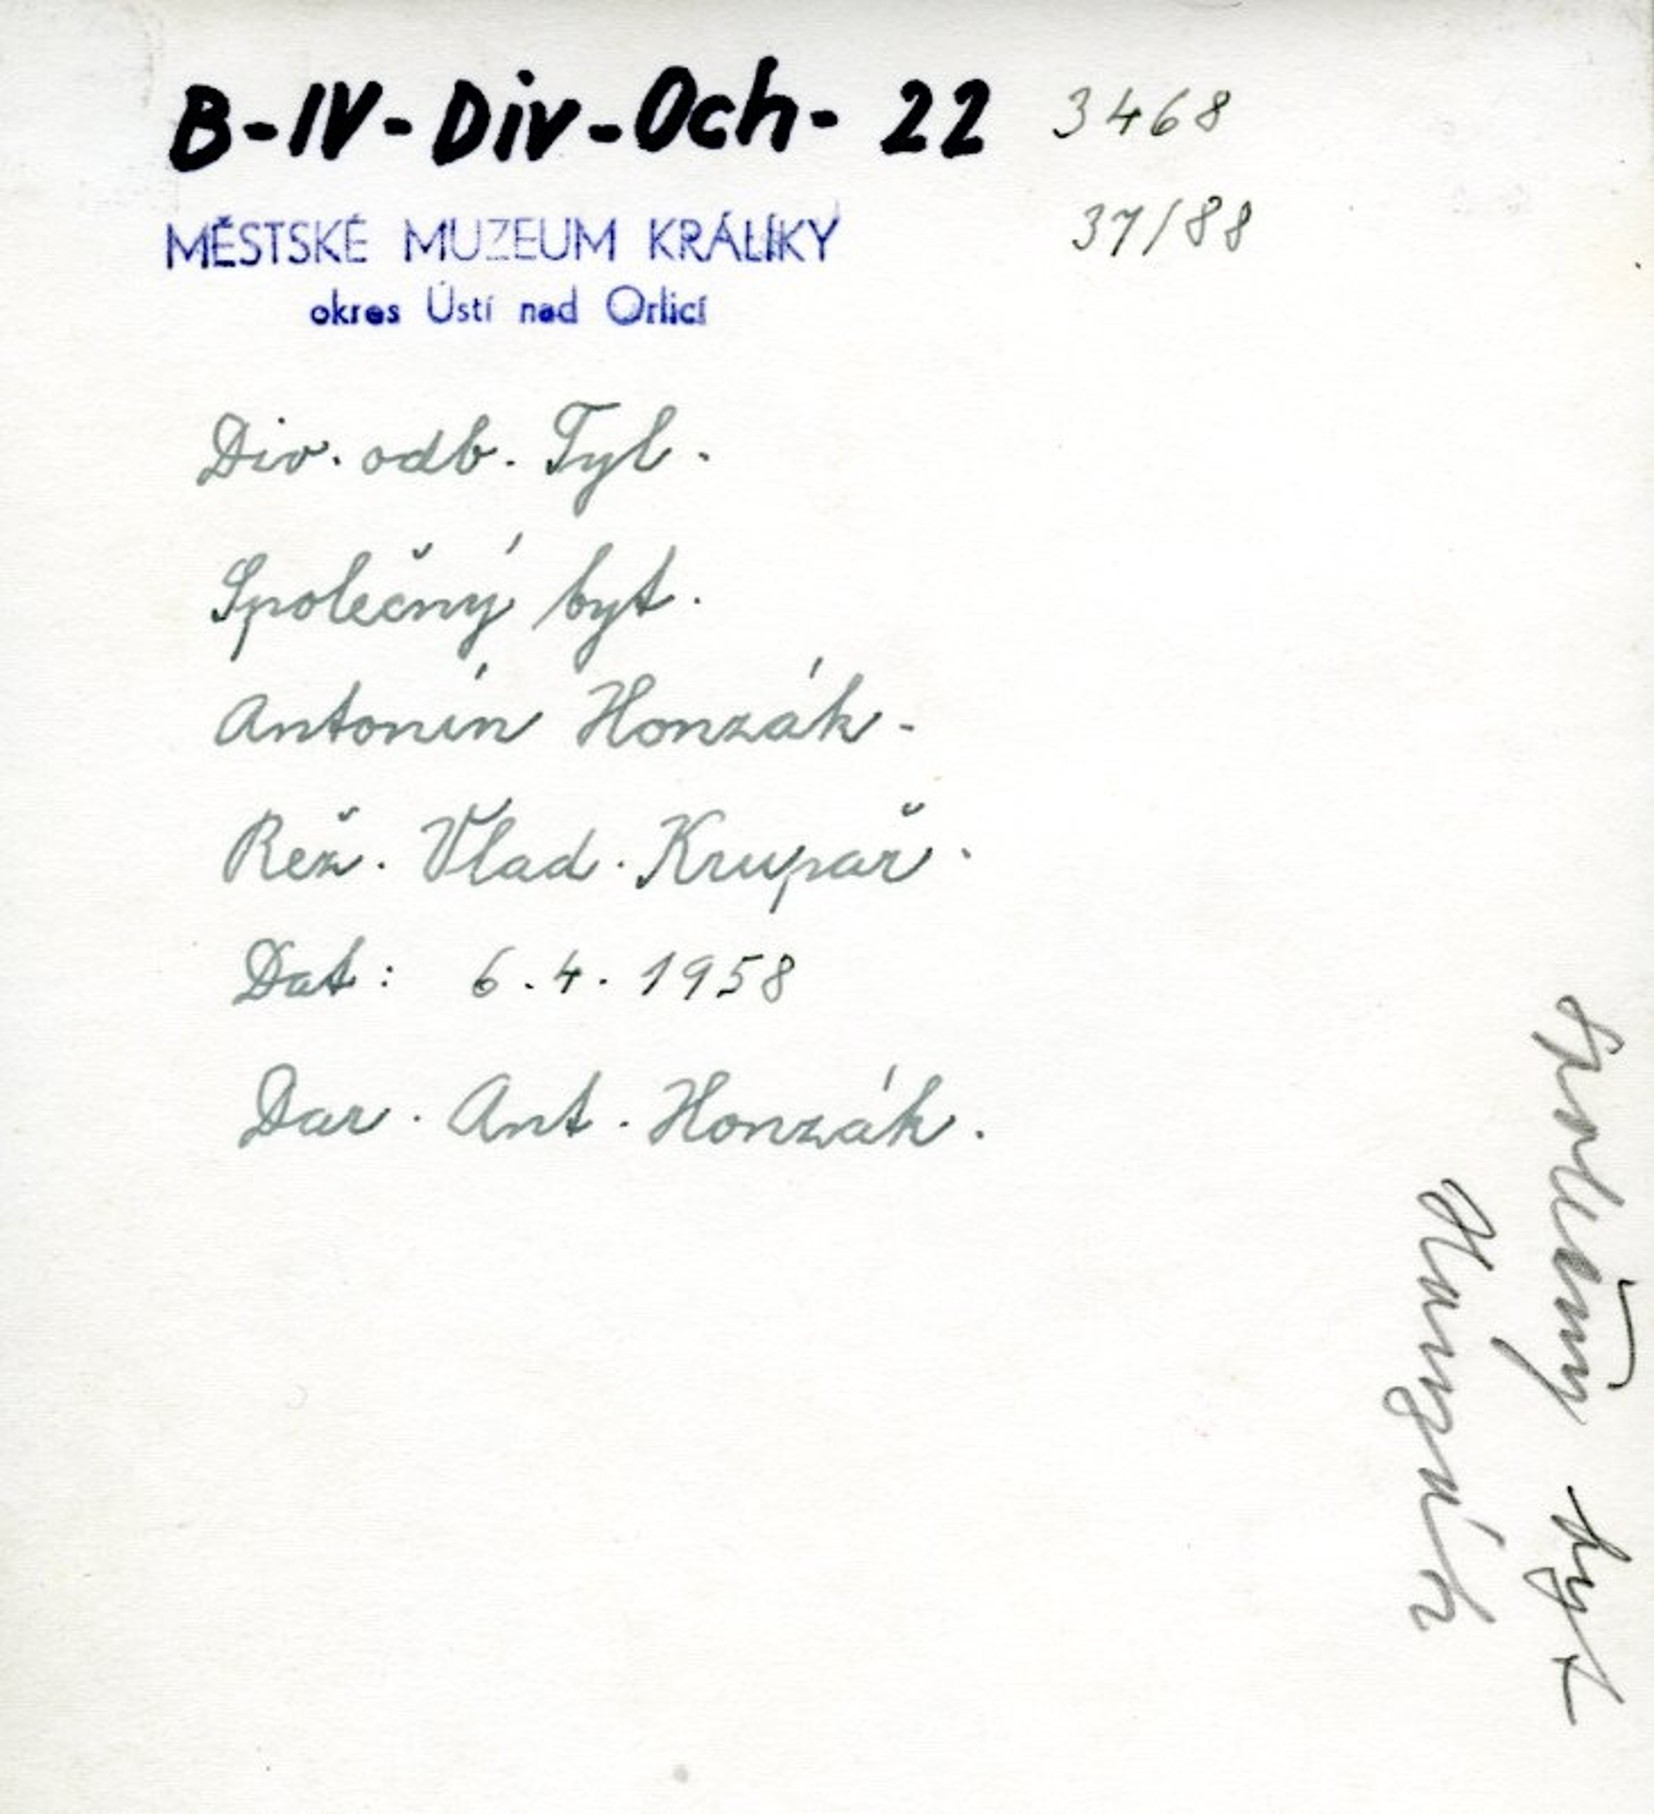 B-IV-Div-Och-22 3468
37/88
MĚSTSKÉ MUZEUM KRÁLÍKY
okres Ústí nad Orlicí
Div. odb. Tyl.
Společný byt.
Antonín Honzák.
Rež. Vlad. Krupař.
Dat: 6.4.1958
Dar. Ant. Honzák.
Společný byt
Honzák